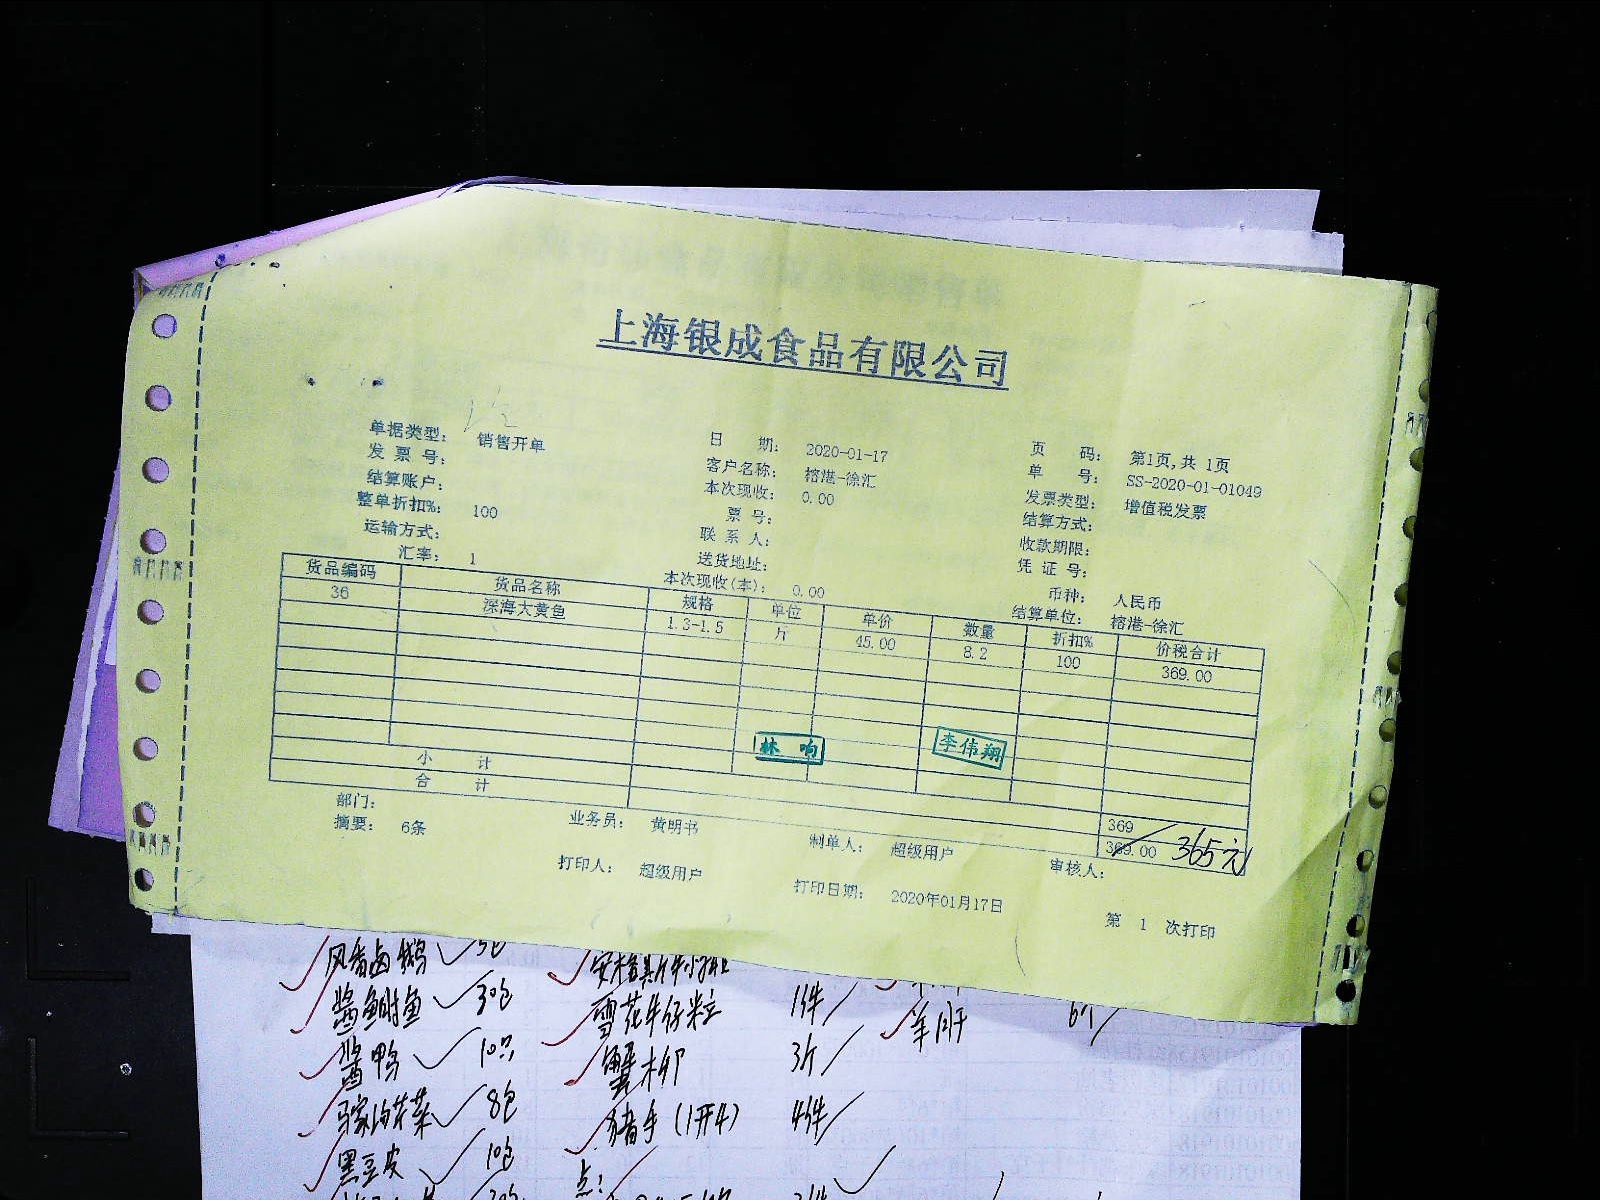 上海银成食品有限公司
单据类型: 销售开单 日 期: 2020-01-17 页 码: 第1页,共 1页
发 票 号: 客户名称: 榕港-徐汇 单 号: SS-2020-01-01049
结算账户: 本次现收: 0.00 发票类型: 增值税发票
整单折扣%: 100 票 号: 结算方式:
运输方式: 联 系 人: 收款期限:
汇率: 1 送货地址: 凭 证 号:
本次现收(本): 0.00 币种: 人民币
结算单位: 榕港-徐汇
货品编码 货品名称 规格 单位 单价 数量 折扣% 价税合计
36 深海大黄鱼 1.3-1.5 斤 45.00 8.2 100 369.00
林 响 李伟翔
小 计 369
合 计 369.00 365元
部门: 业务员: 黄明书 制单人: 超级用户 审核人:
摘要: 6条
打印人: 超级用户 打印日期: 2020年01月17日 第 1 次打印
风香卤鹅 5包
酱鲥鱼 30包 雪花牛仔粒 1件 羊肝 6个
酱鸭 10只 蟹柳 3斤
8包 猪手(1开4) 4件
黑豆皮 10包
点: